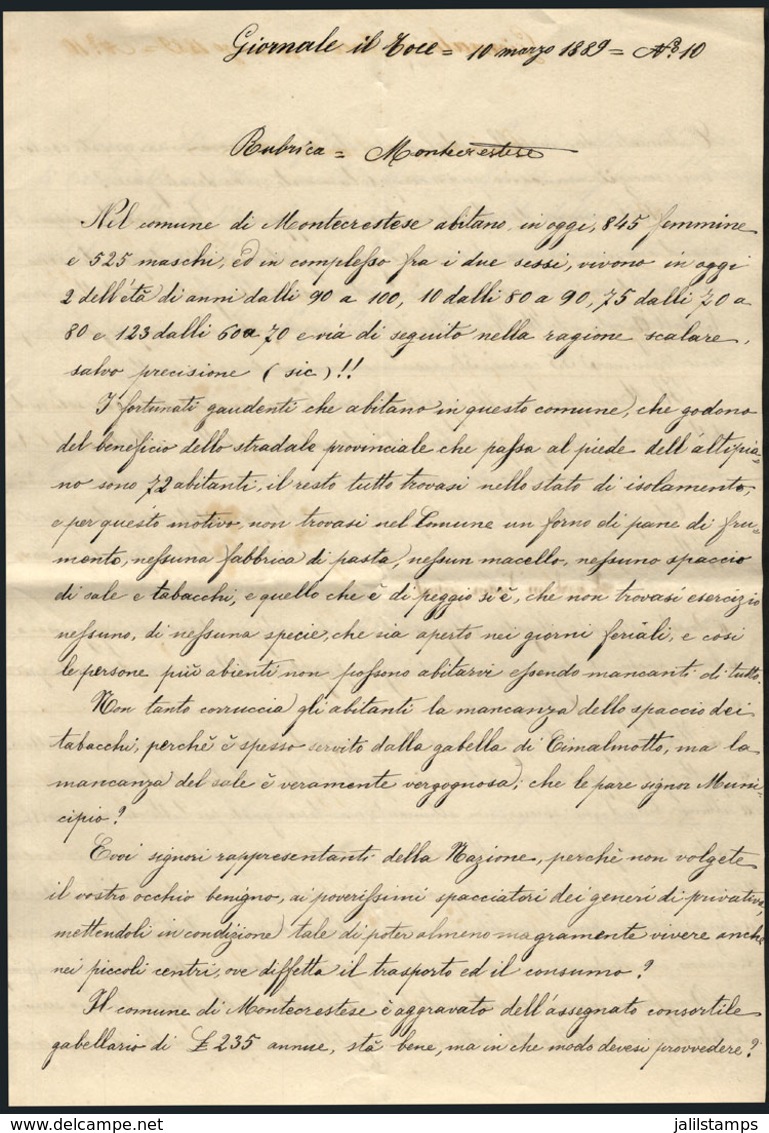 Giornale il Toce = 10 marzo 1889 = N.º 10
Rubrica = Montecrestese
Nel comune di Montecrestese abitano, in oggi, 845 femmine
e 525 maschi, ed in complesso fra i due sessi, vivono in oggi
2 dell'età di anni dalli 90 a 100, 10 dalli 80 a 90, 75 dalli 70 a
80 e 123 dalli 60 a 70 e via di seguito nella ragione scalare,
salvo precisione (sic)!!
I fortunati gaudenti che abitano in questo comune, che godono
del beneficio dello stradale provinciale che passa al piede dell'altipia-
no sono 72 abitanti, il resto tutto trovasi nello stato di isolamento,
e per questo motivo, non trovasi nel Comune un forno di pane di fru-
mento, nessuna fabbrica di pasta, nessun macello, nessuno spaccio
di sale e tabacchi, e quello che è di peggio si è, che non trovasi esercizio
nessuno, di nessuna specie, che sia aperto nei giorni feriali, e così
le persone più abienti non possono abitarvi essendo mancanti di tutto.
Non tanto corruccia gli abitanti la mancanza dello spaccio dei
tabacchi, perchè è spesso servito dalla gabella di Cimalmotto, ma la
mancanza del sale è veramente vergognosa; che le pare signor Muni-
cipio?
E voi signori rappresentanti della Nazione, perchè non volgete
il vostro occhio benigno, ai poverissimi spacciatori dei generi di privativa,
mettendoli in condizione tale di poter almeno magramente vivere anche
nei piccoli centri, ove diffetta il trasporto ed il consumo?
Il comune di Montecrestese è aggravato dell'assegnato consortile
gabellario di £ 235 annue, stà bene, ma in che modo devesi provvedere?
jalilstamps